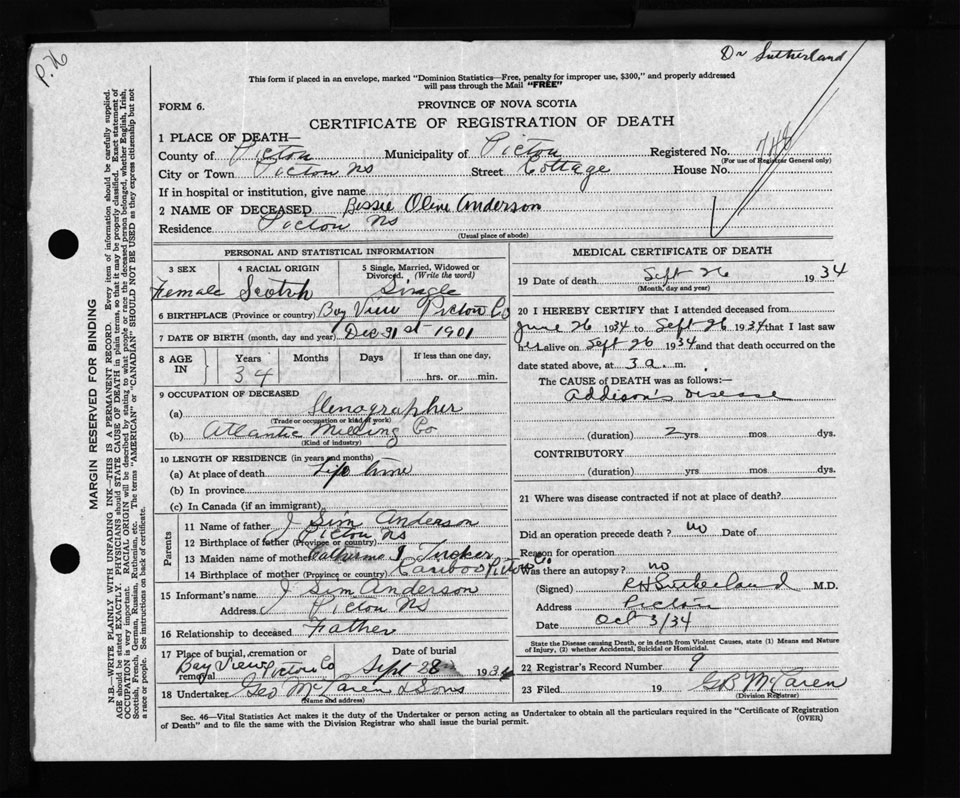 P. 76
Dr Sutherland
This form if placed in an envelope, marked "Dominion Statistics—Free, penalty for improper use, $300," and properly addressed
will pass through the Mail "FREE"
FORM 6.
PROVINCE OF NOVA SCOTIA
CERTIFICATE OF REGISTRATION OF DEATH
1 PLACE OF DEATH—
County of Pictou Municipality of Pictou Registered No. 748
(For use of Registrar General only)
City or Town Pictou NS Street Cottage House No.
If in hospital or institution, give name
2 NAME OF DECEASED Bessie Oline Anderson
Residence Pictou NS
(Usual place of abode)
PERSONAL AND STATISTICAL INFORMATION
3 SEX 4 RACIAL ORIGIN 5 Single, Married, Widowed or Divorced. (Write the word)
Female Scotch Single
6 BIRTHPLACE (Province or country) Bay View Pictou Co
7 DATE OF BIRTH (month, day and year) Dec 31st 1901
8 AGE IN Years Months Days If less than one day,
34 hrs. or min.
9 OCCUPATION OF DECEASED
(a) Stenographer
(Trade or occupation or kind of work)
(b) Atlantic Milling Co
(Kind of industry)
10 LENGTH OF RESIDENCE (in years and months)
(a) At place of death Life time
(b) In province
(c) In Canada (if an immigrant)
Parents
11 Name of father J Sim Anderson
12 Birthplace of father (Province or country) Pictou NS
13 Maiden name of mother Catherine J Tucker
14 Birthplace of mother (Province or country) Cariboo Pictou Co.
15 Informant's name J Sim Anderson
Address Pictou NS
16 Relationship to deceased Father
17 Place of burial, cremation or removal Bay View Pictou Co Date of burial Sept 28 1934
18 Undertaker Geo McLaren & Sons
(Name and address)
MEDICAL CERTIFICATE OF DEATH
19 Date of death Sept 26 1934
(Month, day and year)
20 I HEREBY CERTIFY that I attended deceased from
June 26 1934 to Sept 26 1934 that I last saw
her alive on Sept 26 1934 and that death occurred on the
date stated above, at 3 a. m.
The CAUSE OF DEATH was as follows:—
Addison's Disease
(duration) 2 yrs mos dys.
CONTRIBUTORY
(duration) yrs. mos. dys.
21 Where was disease contracted if not at place of death?
Did an operation precede death? no Date of
Reason for operation
Was there an autopsy? no
(Signed) R H Sutherland M.D.
Address Pictou
Date Oct 3/34
State the Disease causing Death, or in death from Violent Causes, state (1) Means and Nature
of Injury, (2) whether Accidental, Suicidal or Homicidal.
22 Registrar's Record Number 9
23 Filed 19 G B McLaren
(Division Registrar)
Sec. 46—Vital Statistics Act makes it the duty of the Undertaker or person acting as Undertaker to obtain all the particulars required in the "Certificate of Registration
of Death" and to file the same with the Division Registrar who shall issue the burial permit. (OVER)
MARGIN RESERVED FOR BINDING
N.B.—WRITE PLAINLY WITH UNFADING INK—THIS IS A PERMANENT RECORD. Every item of information should be carefully supplied.
AGE should be stated EXACTLY. PHYSICIANS should STATE CAUSE OF DEATH in plain terms, so that it may be properly classified. Exact statement of
OCCUPATION is very important. RACIAL ORIGIN will be described by stating to what people or race the deceased person belonged, whether English, Irish,
Scottish, French, German, Russian, Ruthenian, etc. The terms "AMERICAN" or "CANADIAN" SHOULD NOT BE USED as they express citizenship but not
a race or people. See instructions on back of certificate.